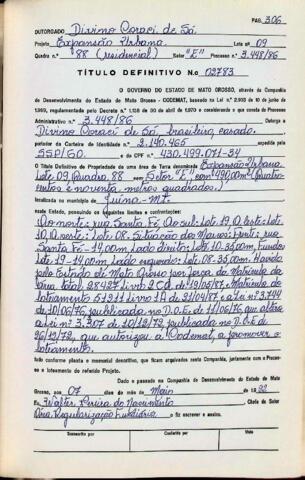 PÁG. 306
OUTORGADO: Divino Coraci de Sá
Projeto Expansão Urbana Lote nº 09
Quadra n.º 88 (residencial) Setor "E" Processo nº 3.448/86
TÍTULO DEFINITIVO No. 02783
O GOVERNO DO ESTADO DE MATO GROSSO, através da Companhia
de Desenvolvimento do Estado de Mato Grosso - CODEMAT, baseado na Lei n.º 2.903 de 10 de junho
1.969, regulamentada pelo Decreto n.º 1.138 de 30 de abril de 1.970 e considerando o que consta do Processo
Administrativo n.º 3.448/86 Outorga a
Divino Coraci de Sá, brasileiro, casado.
portador da Carteira de Identidade n.º 3.140.465 expedida pela
SSP/GO. e do CPF n.º 430.499.071-34
O Título Definitivo de Propriedade de uma área de terra denominada Expansão Urbana
Lote 09, Quadra 88 Setor "E", com 490,00m² (Quatro-
centos e noventa metros quadrados).
localizada no município de Juína-MT.
neste Estado, possuindo os seguintes limites e confrontações:
Ao norte: rua Santa Fé, Ao sul: Lote 19, O, este: Lote
10, O, oeste: Lote 08. Situação do Marco: Frente: rua
Santa Fé - 14,00m. Lado direito: Lote 10-35,00m, Fundos
Lote 19 - 14,00m Lado esquerdo: Lote 08-35,00m. Havida
pelo Estado de Mato Grosso por força da Matrícula da
área total, 28427 Livro 2 CD de 19/05/87, Matrícula do
Loteamento 51211 Livro 1A de 31/04/87 e Lei nº 3.744
de 10/06/76, publicado no D.O.E de 11/06/76 que altera
a Lei nº 3.307 de 10/12/72, publicado no D.O.E de
26/12/72, que autorizou a Codemat a promover o
loteamento.
tudo conforme planta e memorial descritivo, que ficam arquivados nesta Companhia, juntamente com o Proces-
so e loteamento do referido Projeto.
Dado e passado na Companhia de Desenvolvimento do Estado de Mato
Grosso, aos 07 de Maio de 19
Eu Walter Pereira do Nascimento Chefe do Setor
de Regularização Fundiária o fiz escrever e assino.
Manuscrito por Conferido por Visto